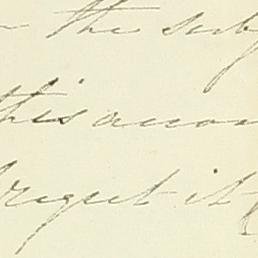 the sub
this accou
regret it